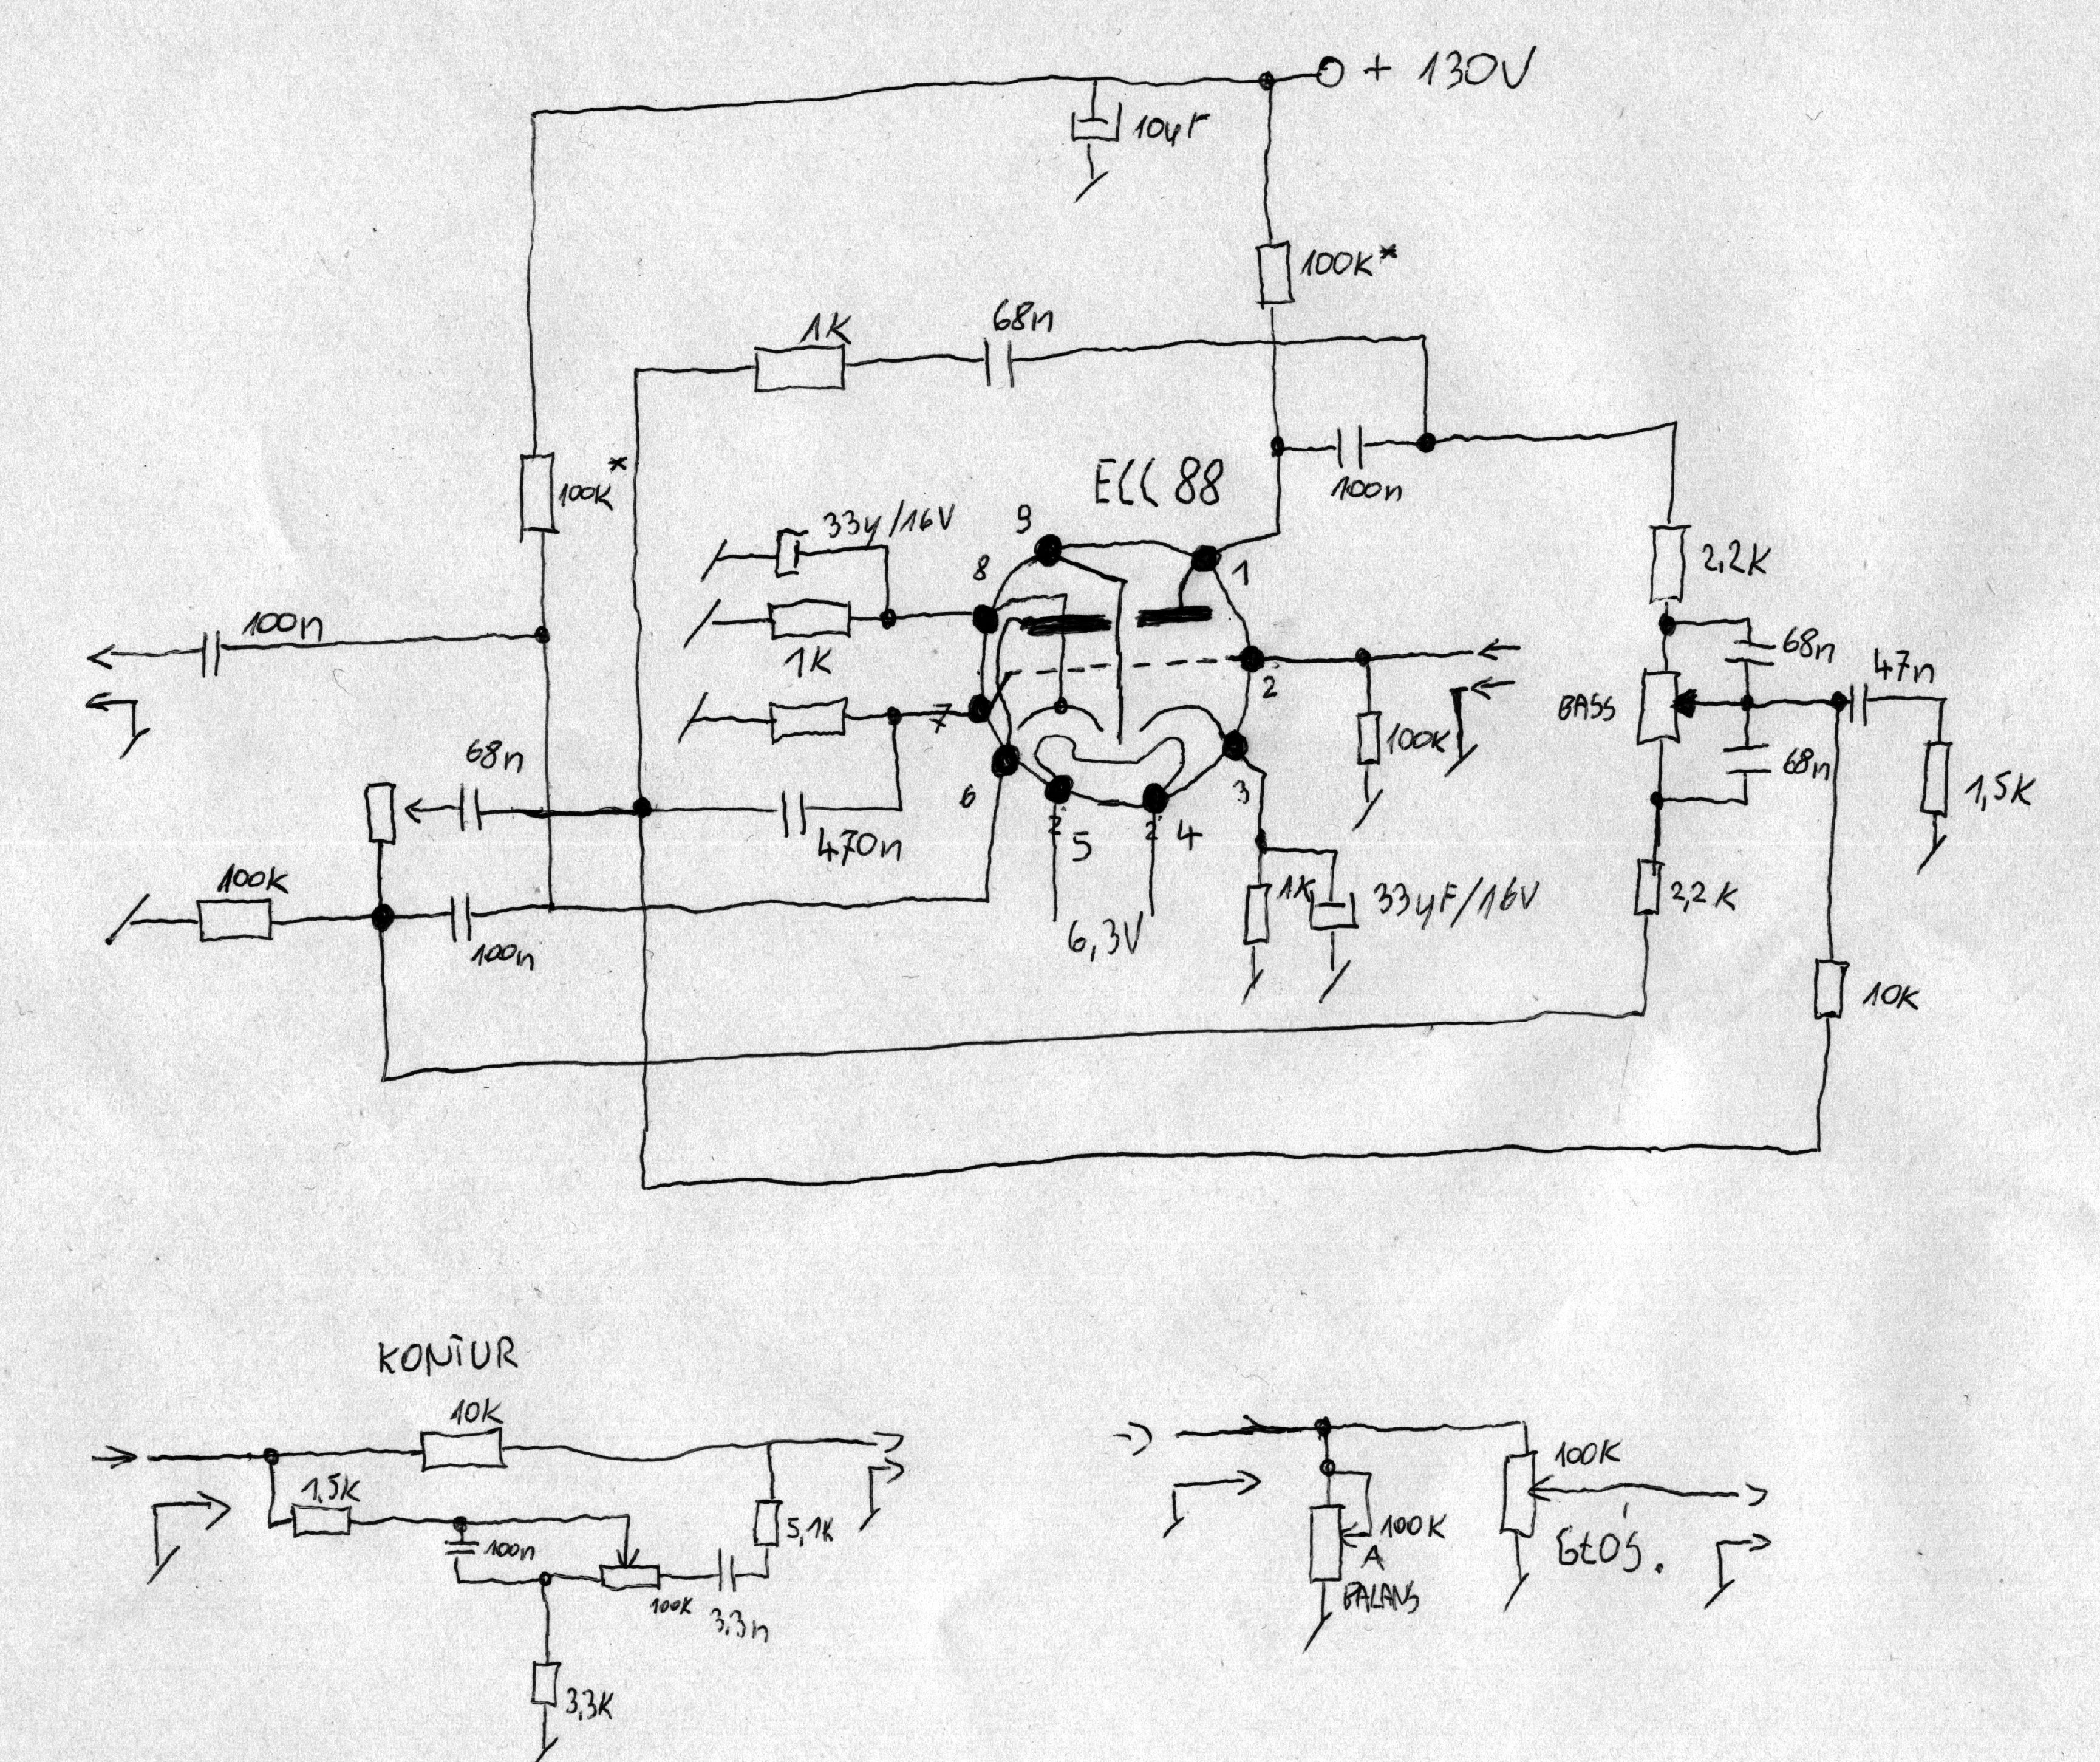 + 130V
10µF
100K*
1K
68n
100n
ECC 88
100K*
33µ/16V
9
8
1
2,2K
100n
1K
2
68n
47n
BASS
7
100K
68n
68n
6
3
1,5K
470n
5
4
100K
1K
33µF/16V
2,2K
100n
6,3V
10K
KONTUR
10K
1,5K
100n
5,1K
100K
3,3n
3,3K
100K
100K
A
BALANS
GŁOŚ.